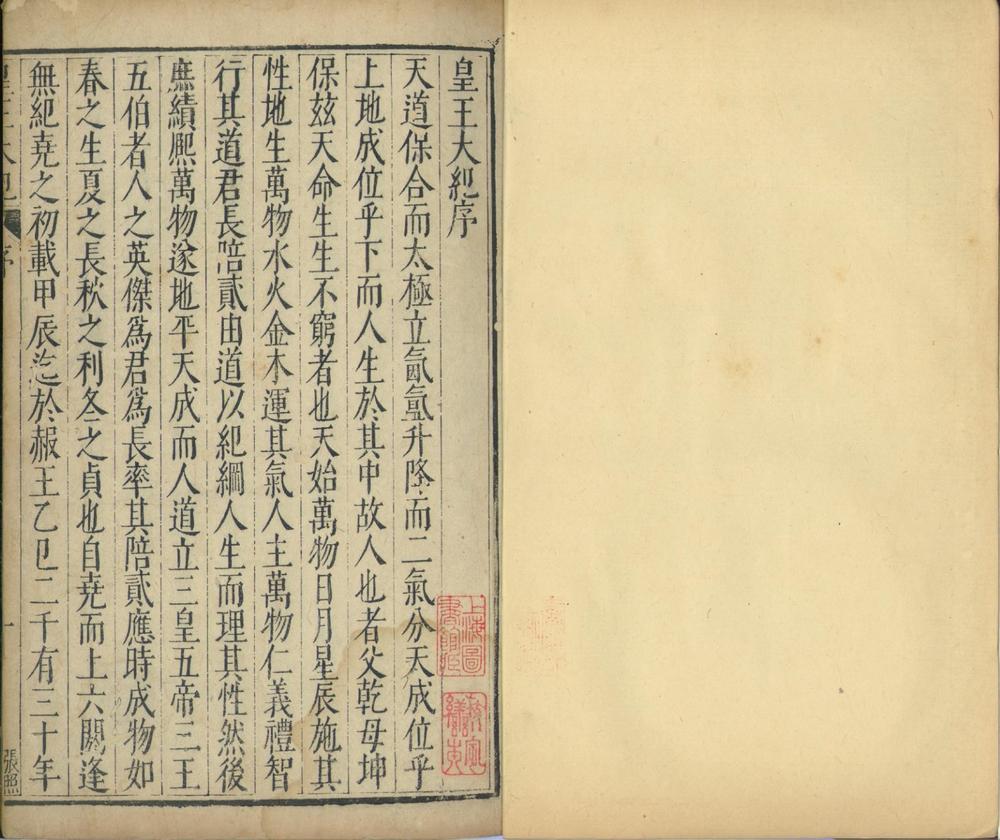 皇王大紀序
天道保合而太極立氤氳升降而二氣分天成位乎
上地成位乎下而人生於其中故人也者父乾母坤
保兹天命生生不窮者也天始萬物日月星辰施其
性地生萬物水火金木運其氣人主萬物仁義禮智
行其道君長陪貳由道以紀綱人生而理其性然後
庶績熈萬物遂地平天成而人道立三皇五帝三王
五伯者人之英傑爲君爲長率其陪貳應時成物如
春之生夏之長秋之利冬之貞也自堯而上六閼逢
無紀堯之初載甲辰迄於赧王乙巳二千有三十年
皇王大紀
序
一
張照
上海圖書館藏